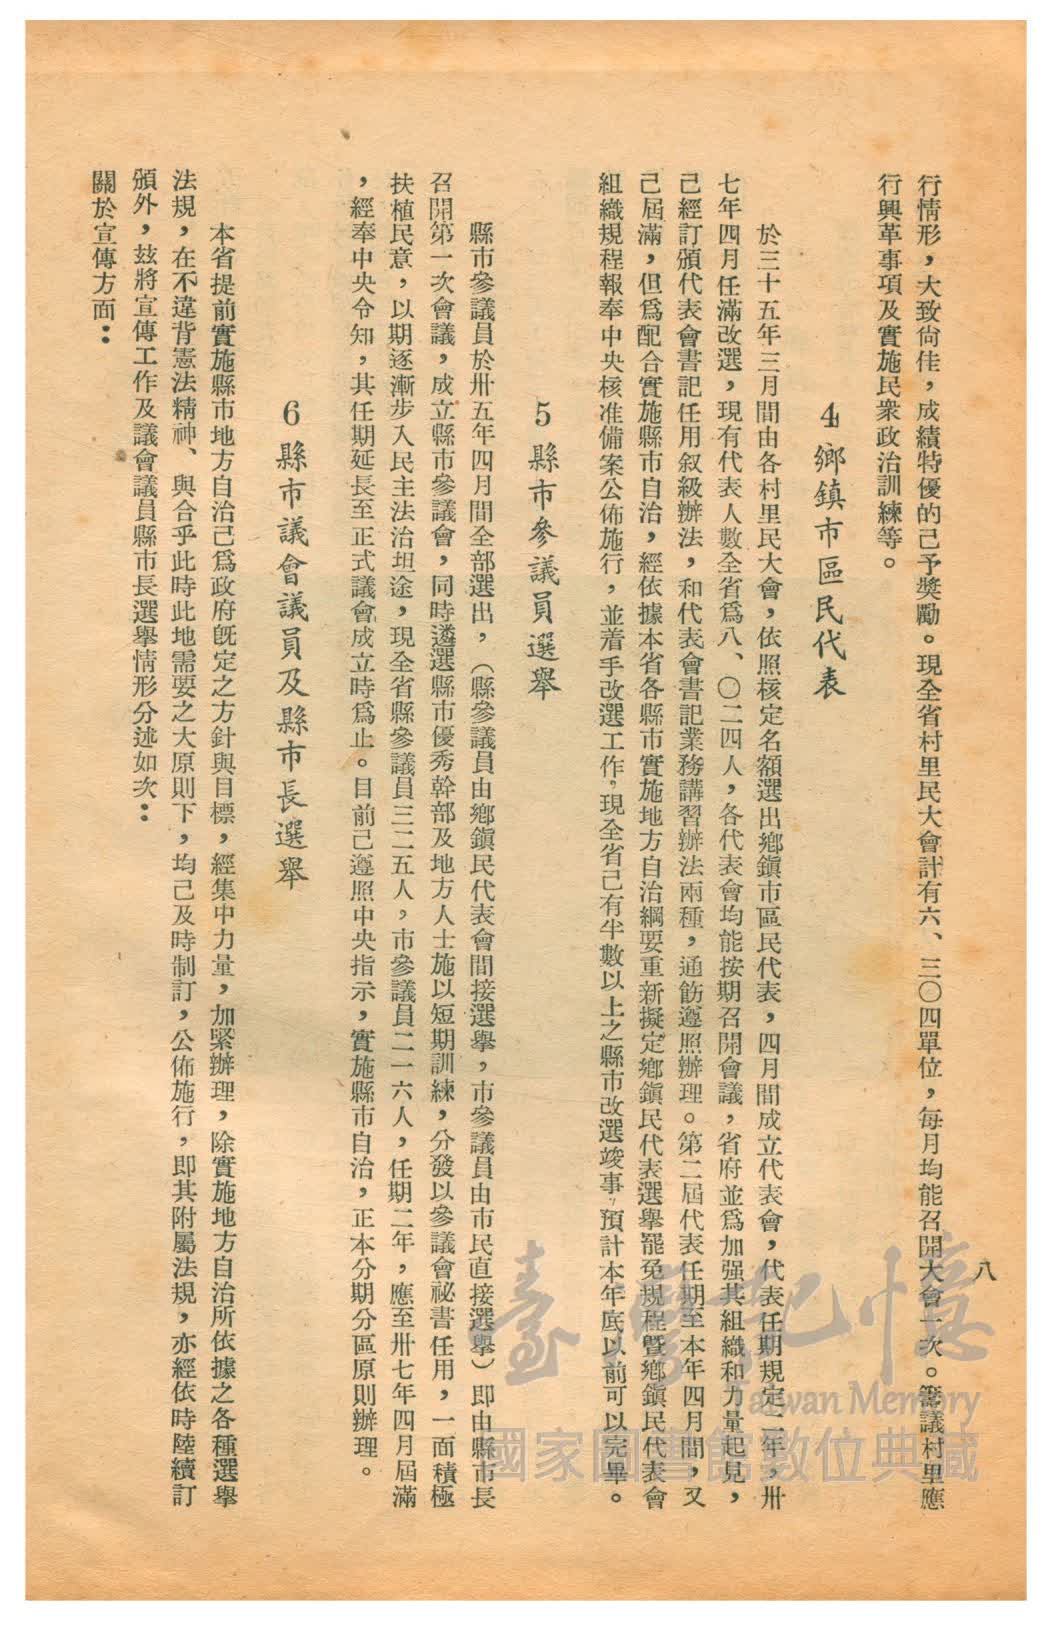 八
行情形，大致尙佳，成績特優的已予獎勵。現全省村里民大會計有六、三〇四單位，每月均能召開大會一次。籌議村里應
行興革事項及實施民衆政治訓練等。
4 鄉鎮市區民代表
於三十五年三月間由各村里民大會，依照核定名額選出鄉鎭市區民代表，四月間成立代表會，代表任期規定二年，卅
七年四月任滿改選，現有代表人數全省爲八、〇二四人，各代表會均能按期召開會議，省府並爲加强其組織和力量起見，
已經訂頒代表會書記任用叙級辦法，和代表會書記業務講習辦法兩種，通飭遵照辦理。第二屆代表任期至本年四月間，又
已屆滿，但爲配合實施縣市自治，經依據本省各縣市實施地方自治綱要重新擬定鄉鎭民代表選舉罷免規程暨鄉鎭民代表會
組織規程報奉中央核准備案公佈施行，並着手改選工作，現全省已有半數以上之縣市改選竣事，預計本年底以前可以完畢。
5 縣市參議員選舉
縣市參議員於卅五年四月間全部選出，（縣參議員由鄉鎭民代表會間接選舉，市參議員由市民直接選舉）即由縣市長
召開第一次會議，成立縣市參議會，同時遴選縣市優秀幹部及地方人士施以短期訓練，分發以參議會祕書任用，一面積極
扶植民意，以期逐漸步入民主法治坦途，現全省縣參議員三二五人，市參議員二一六人，任期二年，應至卅七年四月屆滿
，經奉中央令知，其任期延長至正式議會成立時爲止。目前已遵照中央指示，實施縣市自治，正本分期分區原則辦理。
6 縣市議會議員及縣市長選舉
本省提前實施縣市地方自治已爲政府旣定之方針與目標，經集中力量，加緊辦理，除實施地方自治所依據之各種選舉
法規，在不違背憲法精神、與合乎此時此地需要之大原則下，均已及時制訂，公佈施行，即其附屬法規，亦經依時陸續訂
頒外，玆將宣傳工作及議會議員縣市長選舉情形分述如次：
關於宣傳方面：
臺灣記憶
Taiwan Memory
國家圖書館數位典藏